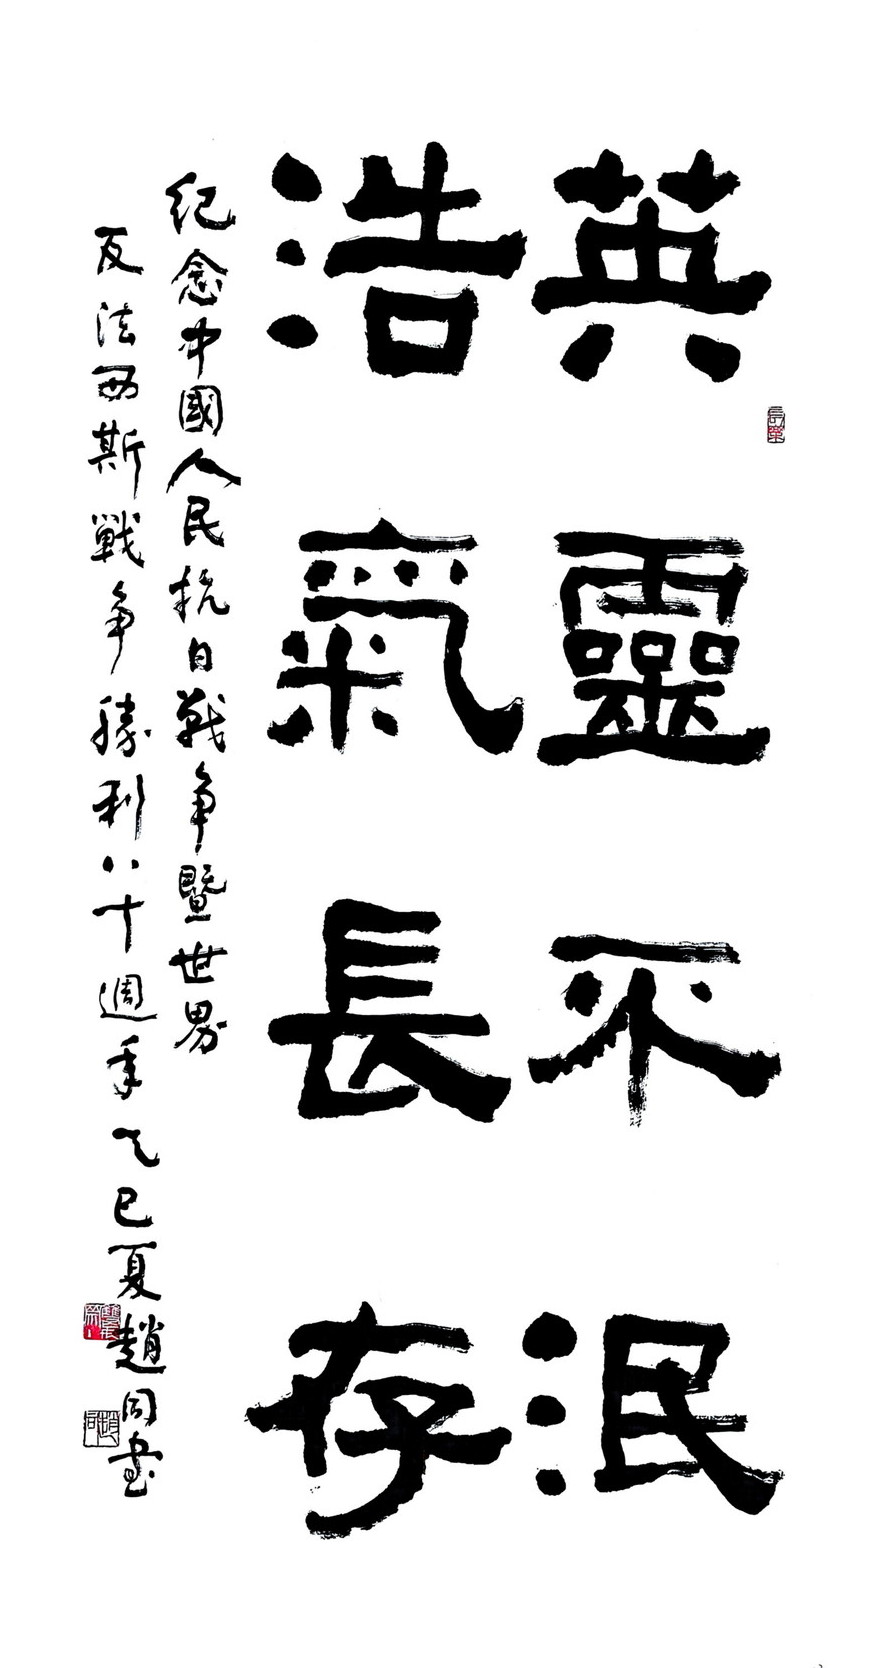 英靈不泯
浩氣長存
紀念中國人民抗日戰争暨世界
反法西斯戰争勝利八十週年乙巳夏趙同書